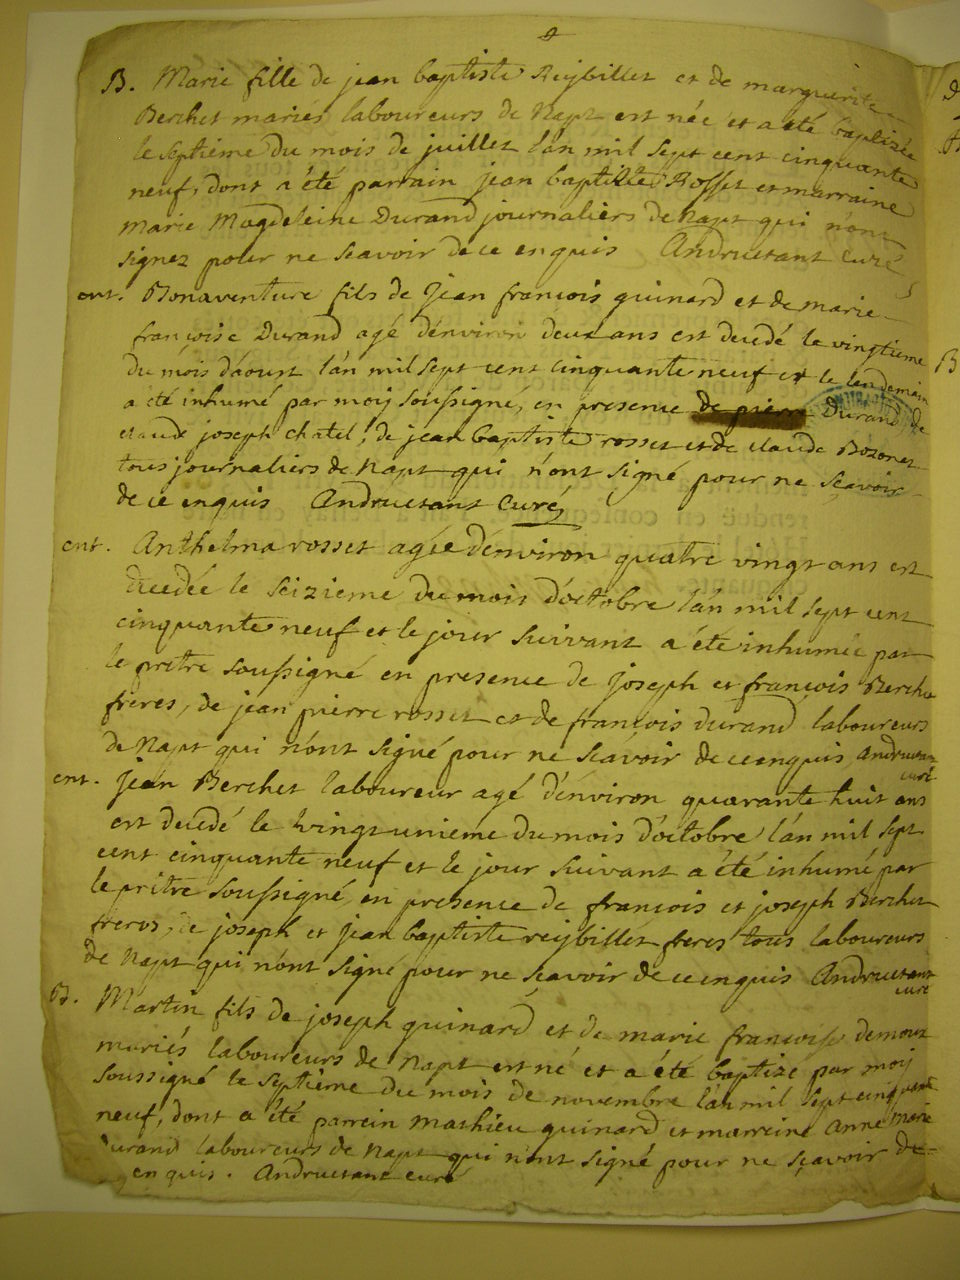 B. Marie fille de jean baptiste Reybillet et de marguerite
Berchet mariés laboureurs de Napt est née et a été baptizée
le septième du mois de juillet l'an mil sept cent cinquante
neuf, dont a été parrain jean baptiste Rosset et marraine
marie Magdeleine Durand journaliers de Napt qui n'ont
signez pour ne scavoir de ce enquis Andruetant Curé
ent. Bonaventure fils de Jean francois guinard et de marie
francoise Durand agé d'environ deux ans est decedé le vingtieme
du mois d'aoust l'an mil sept cent cinquante neuf et le lendemain
a été inhumé par moy soussigné, en presence de pierre Durand, de
claude joseph chatel, de jean baptiste rosset et de claude Bozonet
tous journaliers de Napt qui n'ont signé pour ne sçavoir
de ce enquis Andruetant Curé
ent. Anthelma rosset agée d'environ quatre vingt ans est
decedée le seizieme du mois d'octobre l'an mil sept cent
cinquante neuf et le jour suivant a été inhumée par
le prêtre soussigné en presence de joseph et francois Berchet
freres, de jean pierre rosset et de francois durand laboureurs
de Napt qui n'ont signé pour ne scavoir de ce enquis Andruetant
curé
ent. jean Berchet laboureur agé d'environ quarante huit ans
est decedé le vingt unieme du mois d'octobre l'an mil sept
cent cinquante neuf et le jour suivant a été inhumé par
le prêtre soussigné, en presence de francois et joseph Berchet
freres, de joseph et jean baptiste reybillet freres tous laboureurs
de Napt qui n'ont signé pour ne scavoir de ce enquis Andruetant
curé
B. Martin fils de joseph guinard et de marie francoise demour
mariés laboureurs de Napt est né et a été baptizé par moy
soussigné le septième du mois de novembre l'an mil sept cinquante
neuf, dont a été parrein mathieu guinard et marreine Anne marie
durand laboureurs de Napt qui n'ont signé pour ne sçavoir de
enquis. Andruetant curé